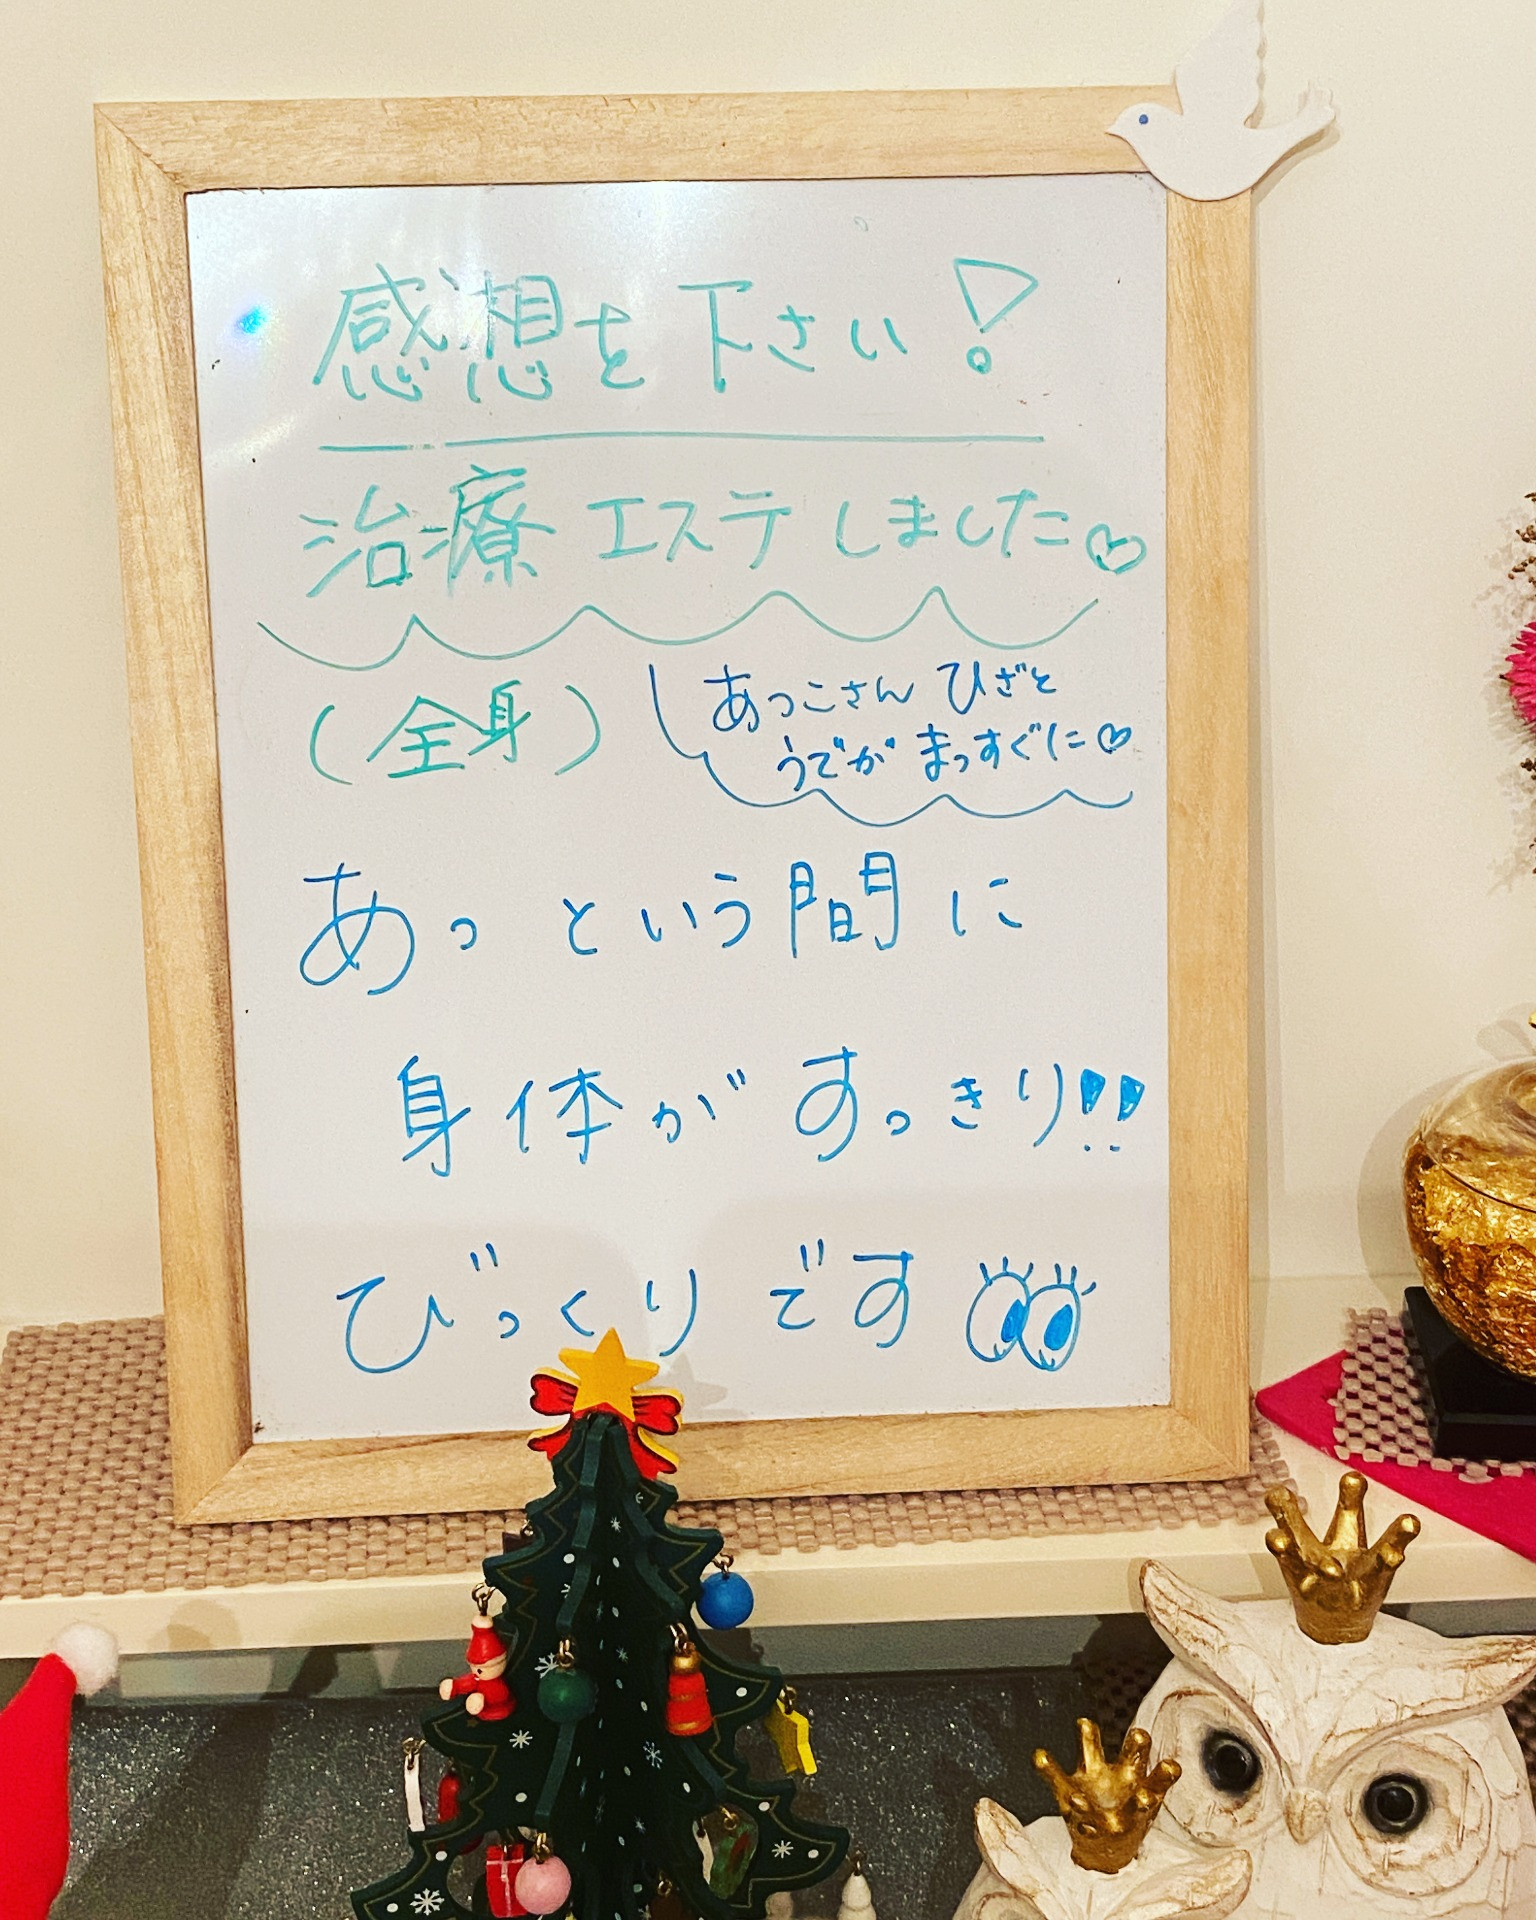 感想を下さい!
治療エステしました♡
(全身)
あっこさん ひざと
うでが まっすぐに♡
あっという間に
身体がすっきり!!
びっくりです